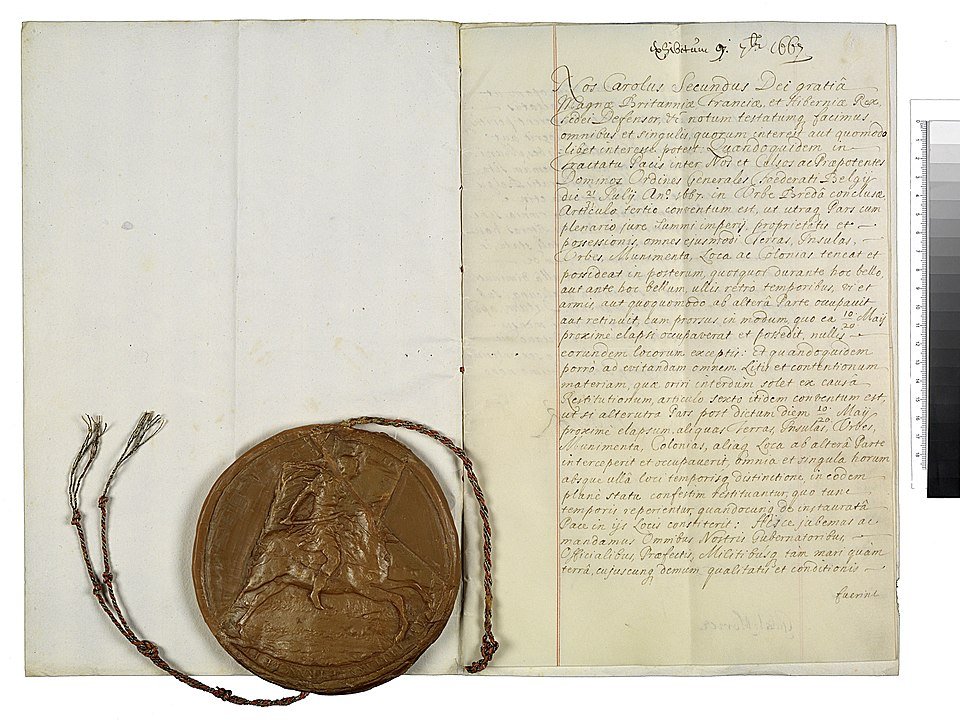 Exhibitum 9. 7br 1667
Nos Carolus Secundus Dei gratiâ
Magnæ Britanniæ Franciæ, et Hiberniæ Rex,
Fidei Defensor, &c notum testatumq facimus
omnibus et singulis, quorum interest aut quomodo
libet interesse potest: Quandoquidem in
Tractatu Pacis inter Nos et Celsos ac Præpotentes
Dominos Ordines Generales Fœderati Belgij
die 21/31 Julij Ano 1667. in Urbe Bredâ conclusæ
Articulo tertio conventum est, ut utraq Pars cum
plenario jure summi imperij, proprietatis et
possessionis, omnes ejusmodi Terras, Insulas,
Urbes, Munimenta, Loca ac Colonias teneat et
possideat in posterum, quotquot durante hoc bello,
aut ante hoc bellum, ullis retro temporibus, vi et
armis, aut quoquomodo ab alterâ Parte occupavit
aut retinuit, eum prorsus in modum quo ea 10/20 Maij
proximè elapsi occupaverat et possedit, nullis
eorundem locorum exceptis: Et quandoquidem
porrò ad evitandam omnem Litis et contentionum
materiam, quæ oriri interdum solet ex causâ
Restitutionum, articulo sexto itidem conventum est,
ut si alterutra Pars post dictum diem 10/20 Maij
proximè elapsum, aliquas Terras, Insulas, Urbes,
Munimenta, Colonias, aliaq Loca ab alterâ Parte
interceperit et occupaverit, omnia et singula horum
absque ullâ loci temporisq distinctione, in eodem
planè statu confestim restituantur quo tunc
temporis reperientur, quandocunq de instauratâ
Pace in ijs Locis constiterit: Hisce jubemus ac
mandamus Omnibus Nostris Gubernatoribus,
Officialibus, Præfectis, Militibusq tam mari quàm
terrâ, cujuscunq demum qualitatis et conditionis
fuerint